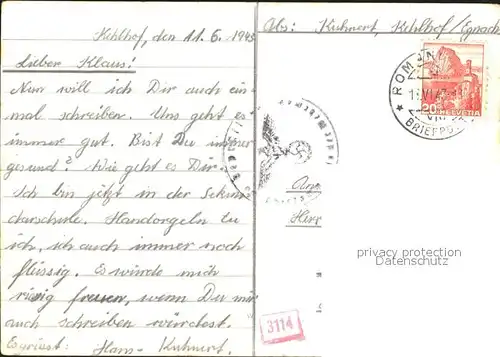 Kehlhof, den 11.6.1943
Lieber Klaus!
Nun will ich Dir auch ein-
mal schreiben. Uns geht es
immer gut. Bist Du immer
gesund? Wie geht es Dir.
Ich bin jetzt in der Sekun-
darschule. Handorgeln tu
ich, ich auch immer noch
flüssig. Es würde mich
riesig freuen, wenn Du mir
auch schreiben würdest.
Es grüsst: Hans Kuhnert.
Abs: Kuhnert, Kehlhof/Egnach
ROMAN
BRIEFPO
20 HELVETIA
Herr
privacy protection
Datenschutz
3114